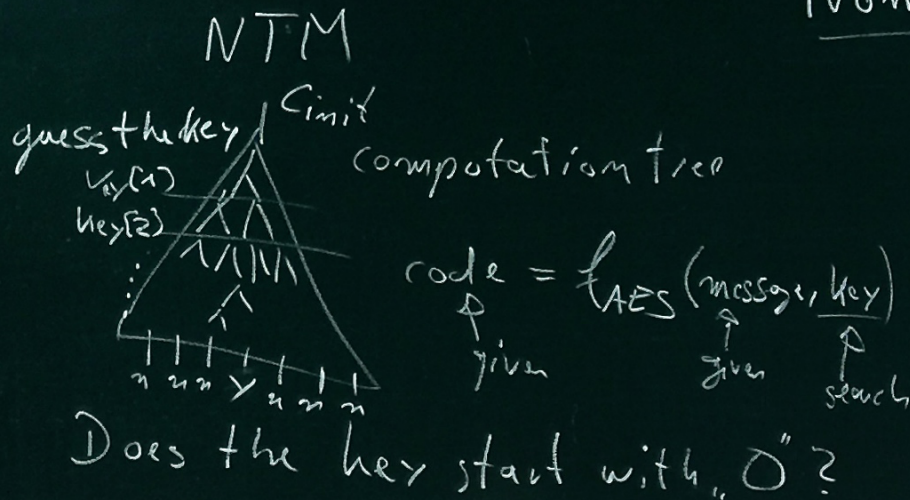 NTM
Cinit
guess the key
computation tree
key(1)
key(2)
code = fAES(message, key)
given given search
n n n y n n n
Does the key start with „0"?